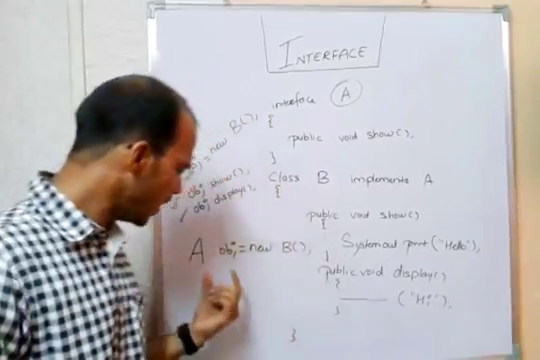 INTERFACE
interface A
{
public void show();
}
class B implements A
{
public void show()
{
System.out.print("Hello");
}
public void display()
{
("Hi");
}
}
obj = new B();
obj. show();
obj. display();
A obj = new B();